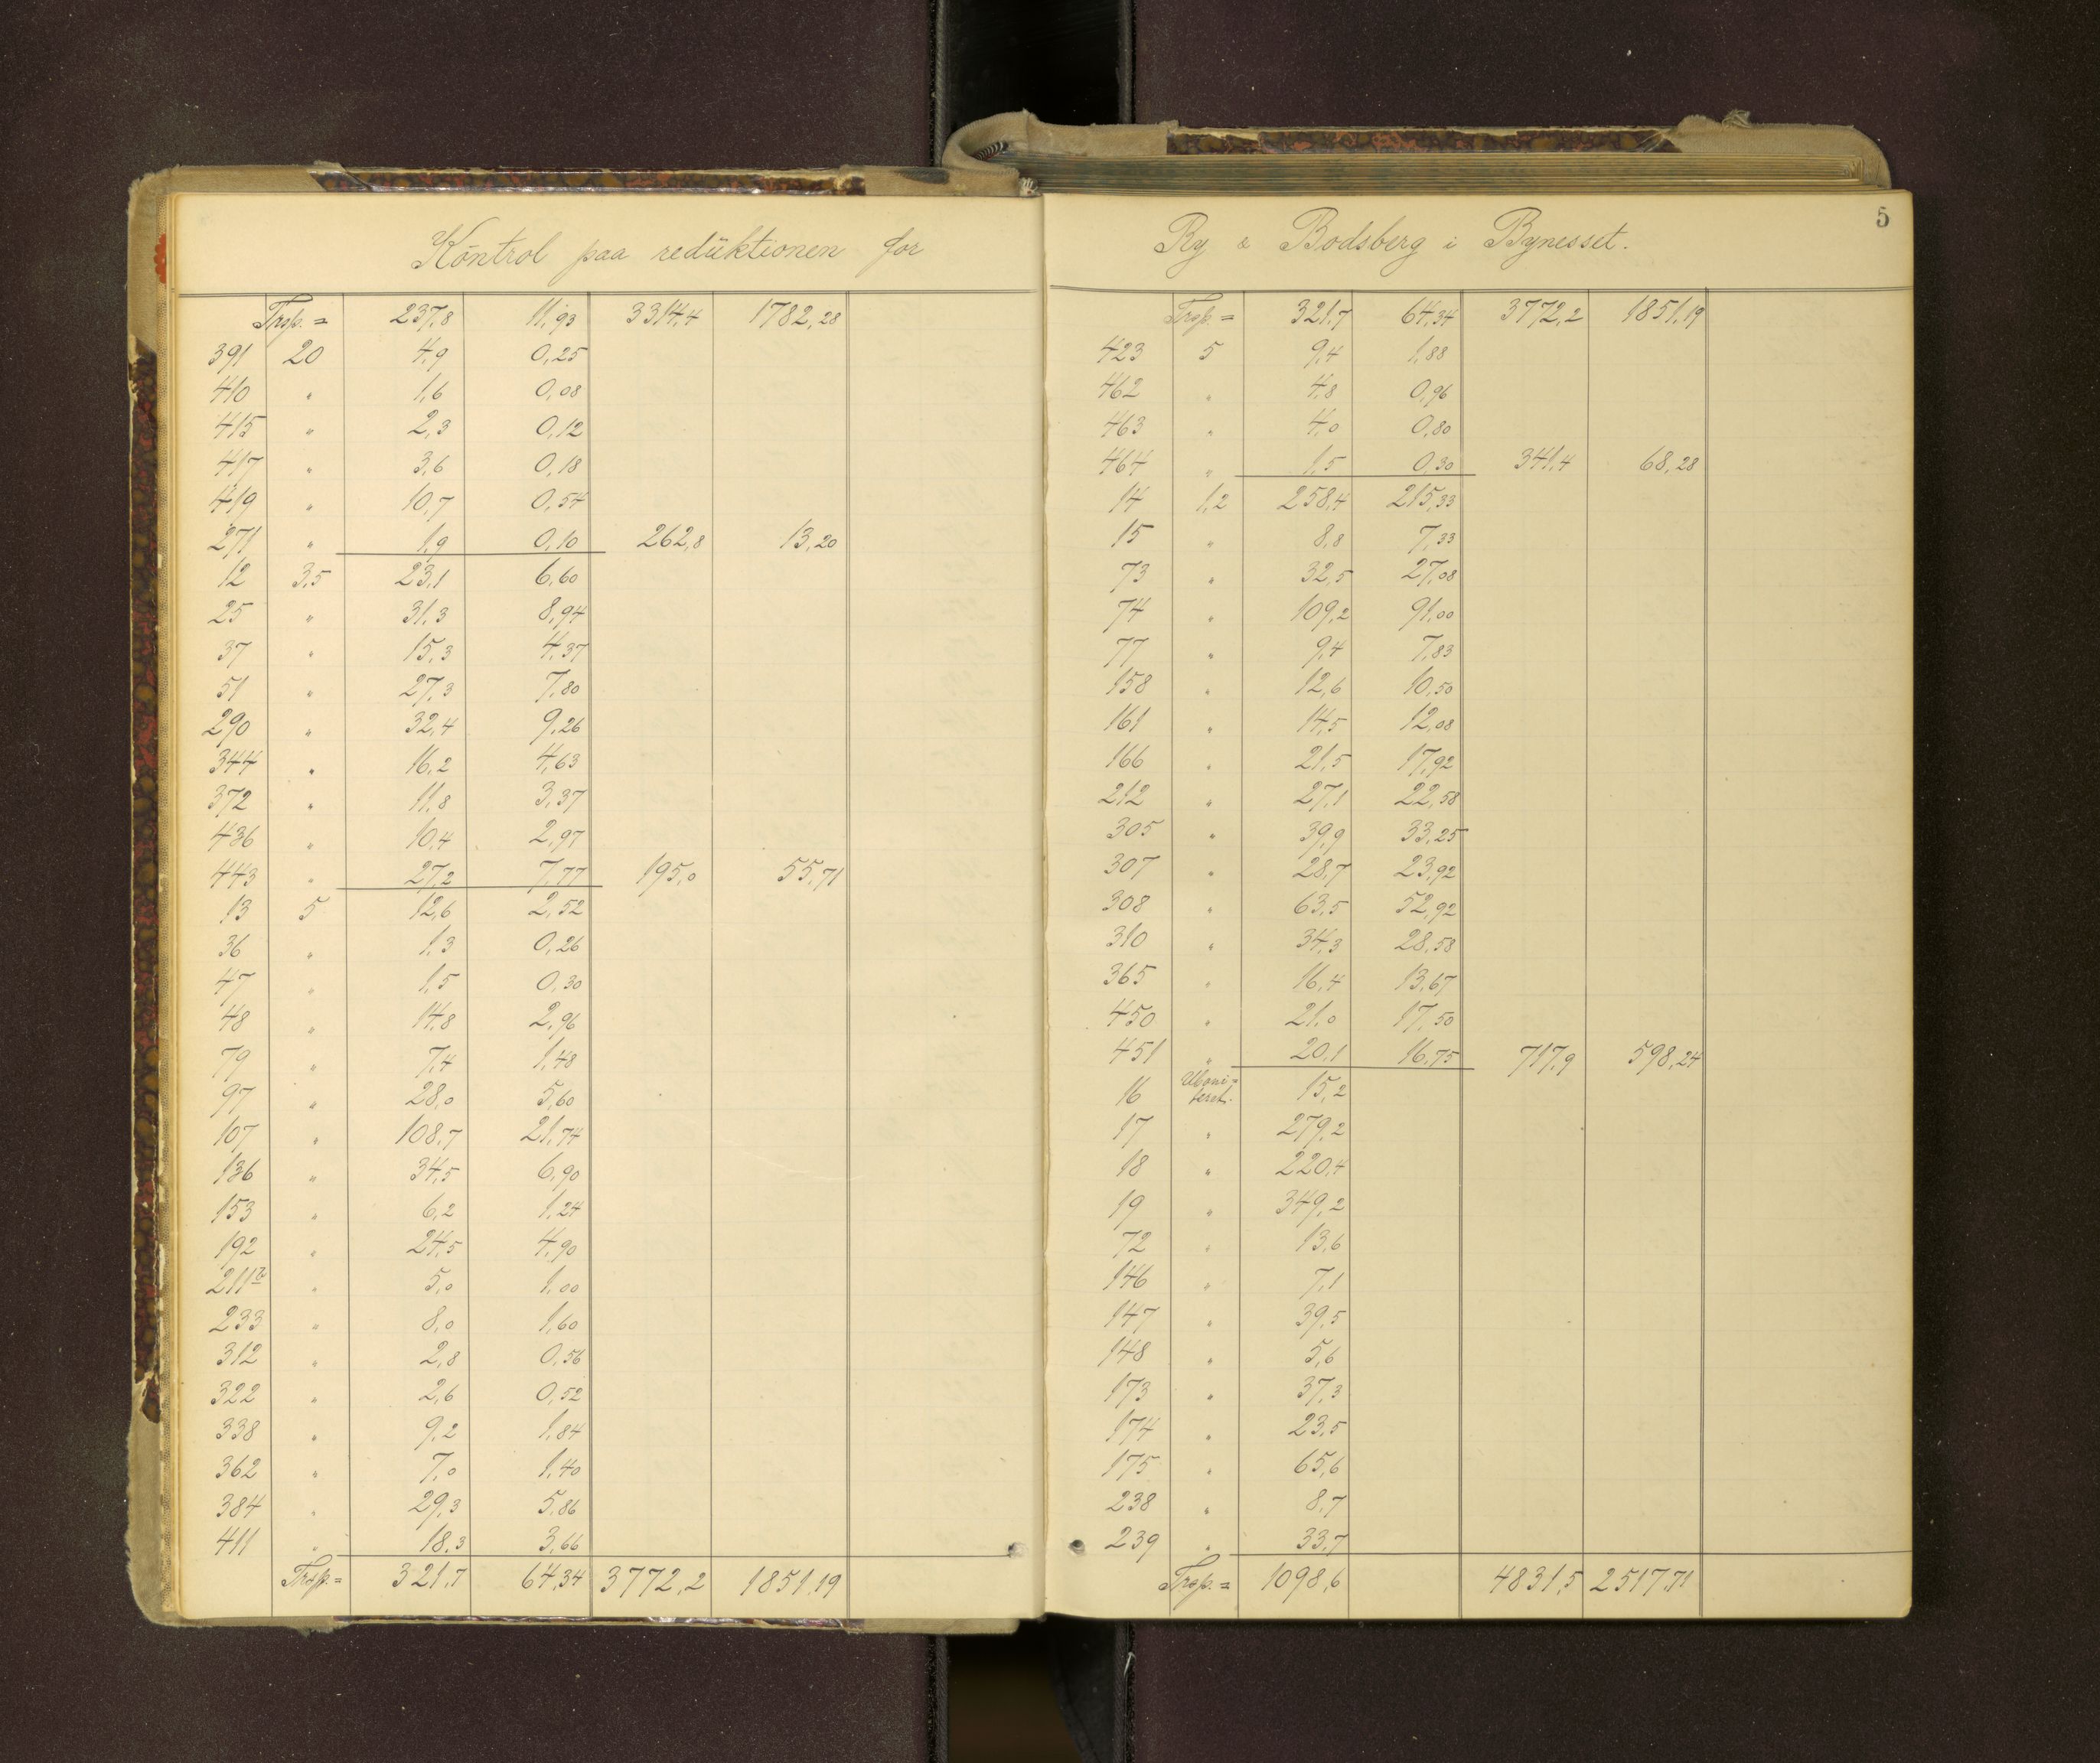 Kontrol paa reduktionen for
Trsp. = 237,8 11,93 3314,4 1782,28
391 20 4,9 0,25
410 " 1,6 0,08
415 " 2,3 0,12
417 " 3,6 0,18
419 " 10,7 0,54
271 " 1,9 0,10 262,8 13,20
12 3,5 23,1 6,60
25 " 31,3 8,94
37 " 15,3 4,37
51 " 27,3 7,80
290 " 32,4 9,26
344 " 16,2 4,63
372 " 11,8 3,37
436 " 10,4 2,97
443 " 27,2 7,77 195,0 55,71
13 5 12,6 2,52
36 " 1,3 0,26
47 " 1,5 0,30
48 " 14,8 2,96
79 " 7,4 1,48
97 " 28,0 5,60
107 " 108,7 21,74
136 " 34,5 6,90
153 " 6,2 1,24
192 " 24,5 4,90
211 " 5,0 1,00
233 " 8,0 1,60
312 " 2,8 0,56
322 " 2,6 0,52
338 " 9,2 1,84
362 " 7,0 1,40
384 " 29,3 5,86
411 " 18,3 3,66
Trsp. = 321,7 64,34 3772,2 1851,19
5
Ry & Bodsberg i Bynesset.
Trsp. = 321,7 64,34 3772,2 1851,19
423 5 9,4 1,88
462 " 4,8 0,96
463 " 4,0 0,80
464 " 1,5 0,30 341,4 68,28
14 1,2 258,4 215,33
15 " 8,8 7,33
73 " 32,5 27,08
74 " 109,2 91,00
77 " 9,4 7,83
158 " 12,6 10,50
161 " 14,5 12,08
166 " 21,5 17,92
212 " 27,1 22,58
305 " 39,9 33,25
307 " 28,7 23,92
308 " 63,5 52,92
310 " 34,3 28,58
365 " 16,4 13,67
450 " 21,0 17,50
451 " 20,1 16,75 717,9 598,24
16 Uboni=
teret. 15,2
17 " 279,2
18 " 220,4
19 " 349,2
72 " 13,6
146 " 7,1
147 " 39,5
148 " 5,6
173 " 37,3
174 " 23,5
175 " 65,6
238 " 8,7
239 " 33,7
Trsp. = 1098,6 4831,5 2517,71